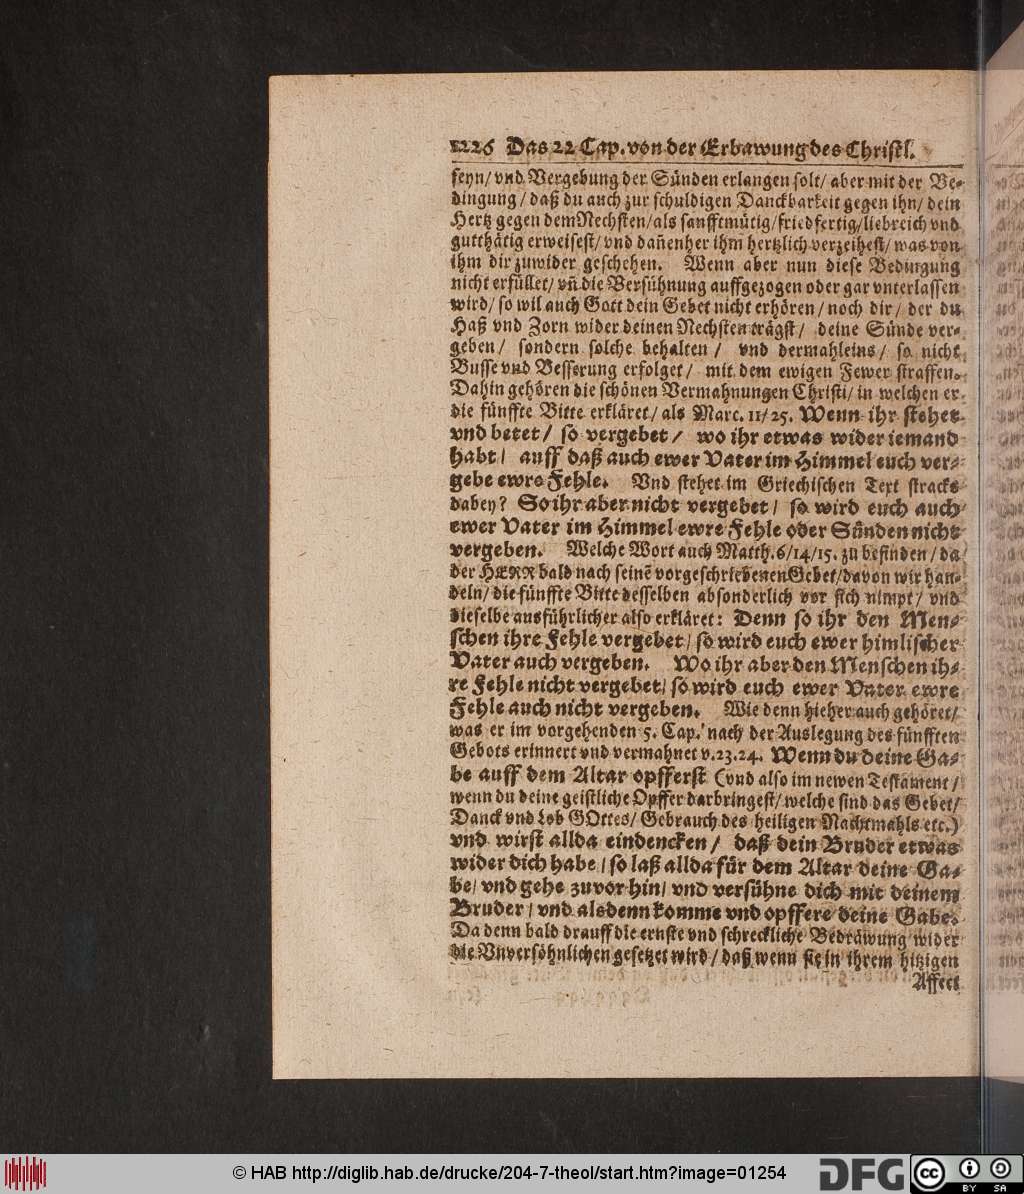 1226 Das 22 Cap. von der Erbawung des Christl.
seyn/ vnd Vergebung der Sünden erlangen solt/ aber mit der Be-
dingung/ daß du auch zur schuldigen Danckbarkeit gegen ihn/ dein
Hertz gegen dem Nechsten/ als sanfftmütig/ friedfertig/ liebreich vnd
gutthätig erweisest/ vnd dañenher ihm hertzlich verzeihest/ was von
ihm dir zuwider geschehen. Wenn aber nun diese Bedingung
nicht erfüllet/ vñ die Versühnung auffgezogen oder gar vnterlassen
wird/ so wil auch Gott dein Gebet nicht erhören/ noch dir/ der du
Haß vnd Zorn wider deinen Nechsten trägst/ deine Sünde ver-
geben/ sondern solche behalten/ vnd dermahleins/ so nicht
Busse vnd Besserung erfolget/ mit dem ewigen Fewer straffen.
Dahin gehören die schönen Vermahnungen Christi/ in welchen er
die fünffte Bitte erkläret/ als Marc. 11/ 25. Wenn ihr stehet
vnd betet/ so vergebet/ wo ihr etwas wider iemand
habt/ auff daß auch ewer Vater im Himmel euch ver-
gebe ewre Fehle. Vnd stehet im Griechischen Text stracks
dabey? So ihr aber nicht vergebet/ so wird euch auch
ewer Vater im Himmel ewre Fehle oder Sünden nicht
vergeben. Welche Wort auch Matth. 6/ 14/ 15. zu befinden/ da
der HERR bald nach seinē vorgeschriebenen Gebet/ davon wir han-
deln/ die fünffte Bitte desselben absonderlich vor sich nimpt/ vnd
dieselbe ausführlicher also erkläret: Denn so ihr den Men-
schen ihre Fehle vergebet/ so wird euch ewer himlischer
Vater auch vergeben. Wo ihr aber den Menschen ih-
re Fehle nicht vergebet/ so wird euch ewer Vater ewre
Fehle auch nicht vergeben. Wie denn hieher auch gehöret/
was er im vorgehenden 5. Cap. nach der Auslegung des fünfften
Gebots erinnert vnd vermahnet v. 23. 24. Wenn du deine Ga-
be auff dem Altar opfferst (vnd also im newen Testament/
wenn du deine geistliche Opffer darbringest/ welche sind das Gebet/
Danck vnd Lob GOttes/ Gebrauch des heiligen Nachtmahls etc.)
vnd wirst allda eindencken/ daß dein Bruder etwas
wider dich habe/ so laß allda für dem Altar deine Ga-
be/ vnd gehe zuvor hin/ vnd versühne dich mit deinem
Bruder/ vnd alsdenn komme vnd opffere deine Gabe.
Da denn bald drauff die ernste vnd schreckliche Bedräwung wider
die Vnversöhnlichen gesetzet wird/ daß wenn sie in ihrem hitzigen
Affect
© HAB http://diglib.hab.de/drucke/204-7-theol/start.htm?image=01254
DFG
cc BY SA